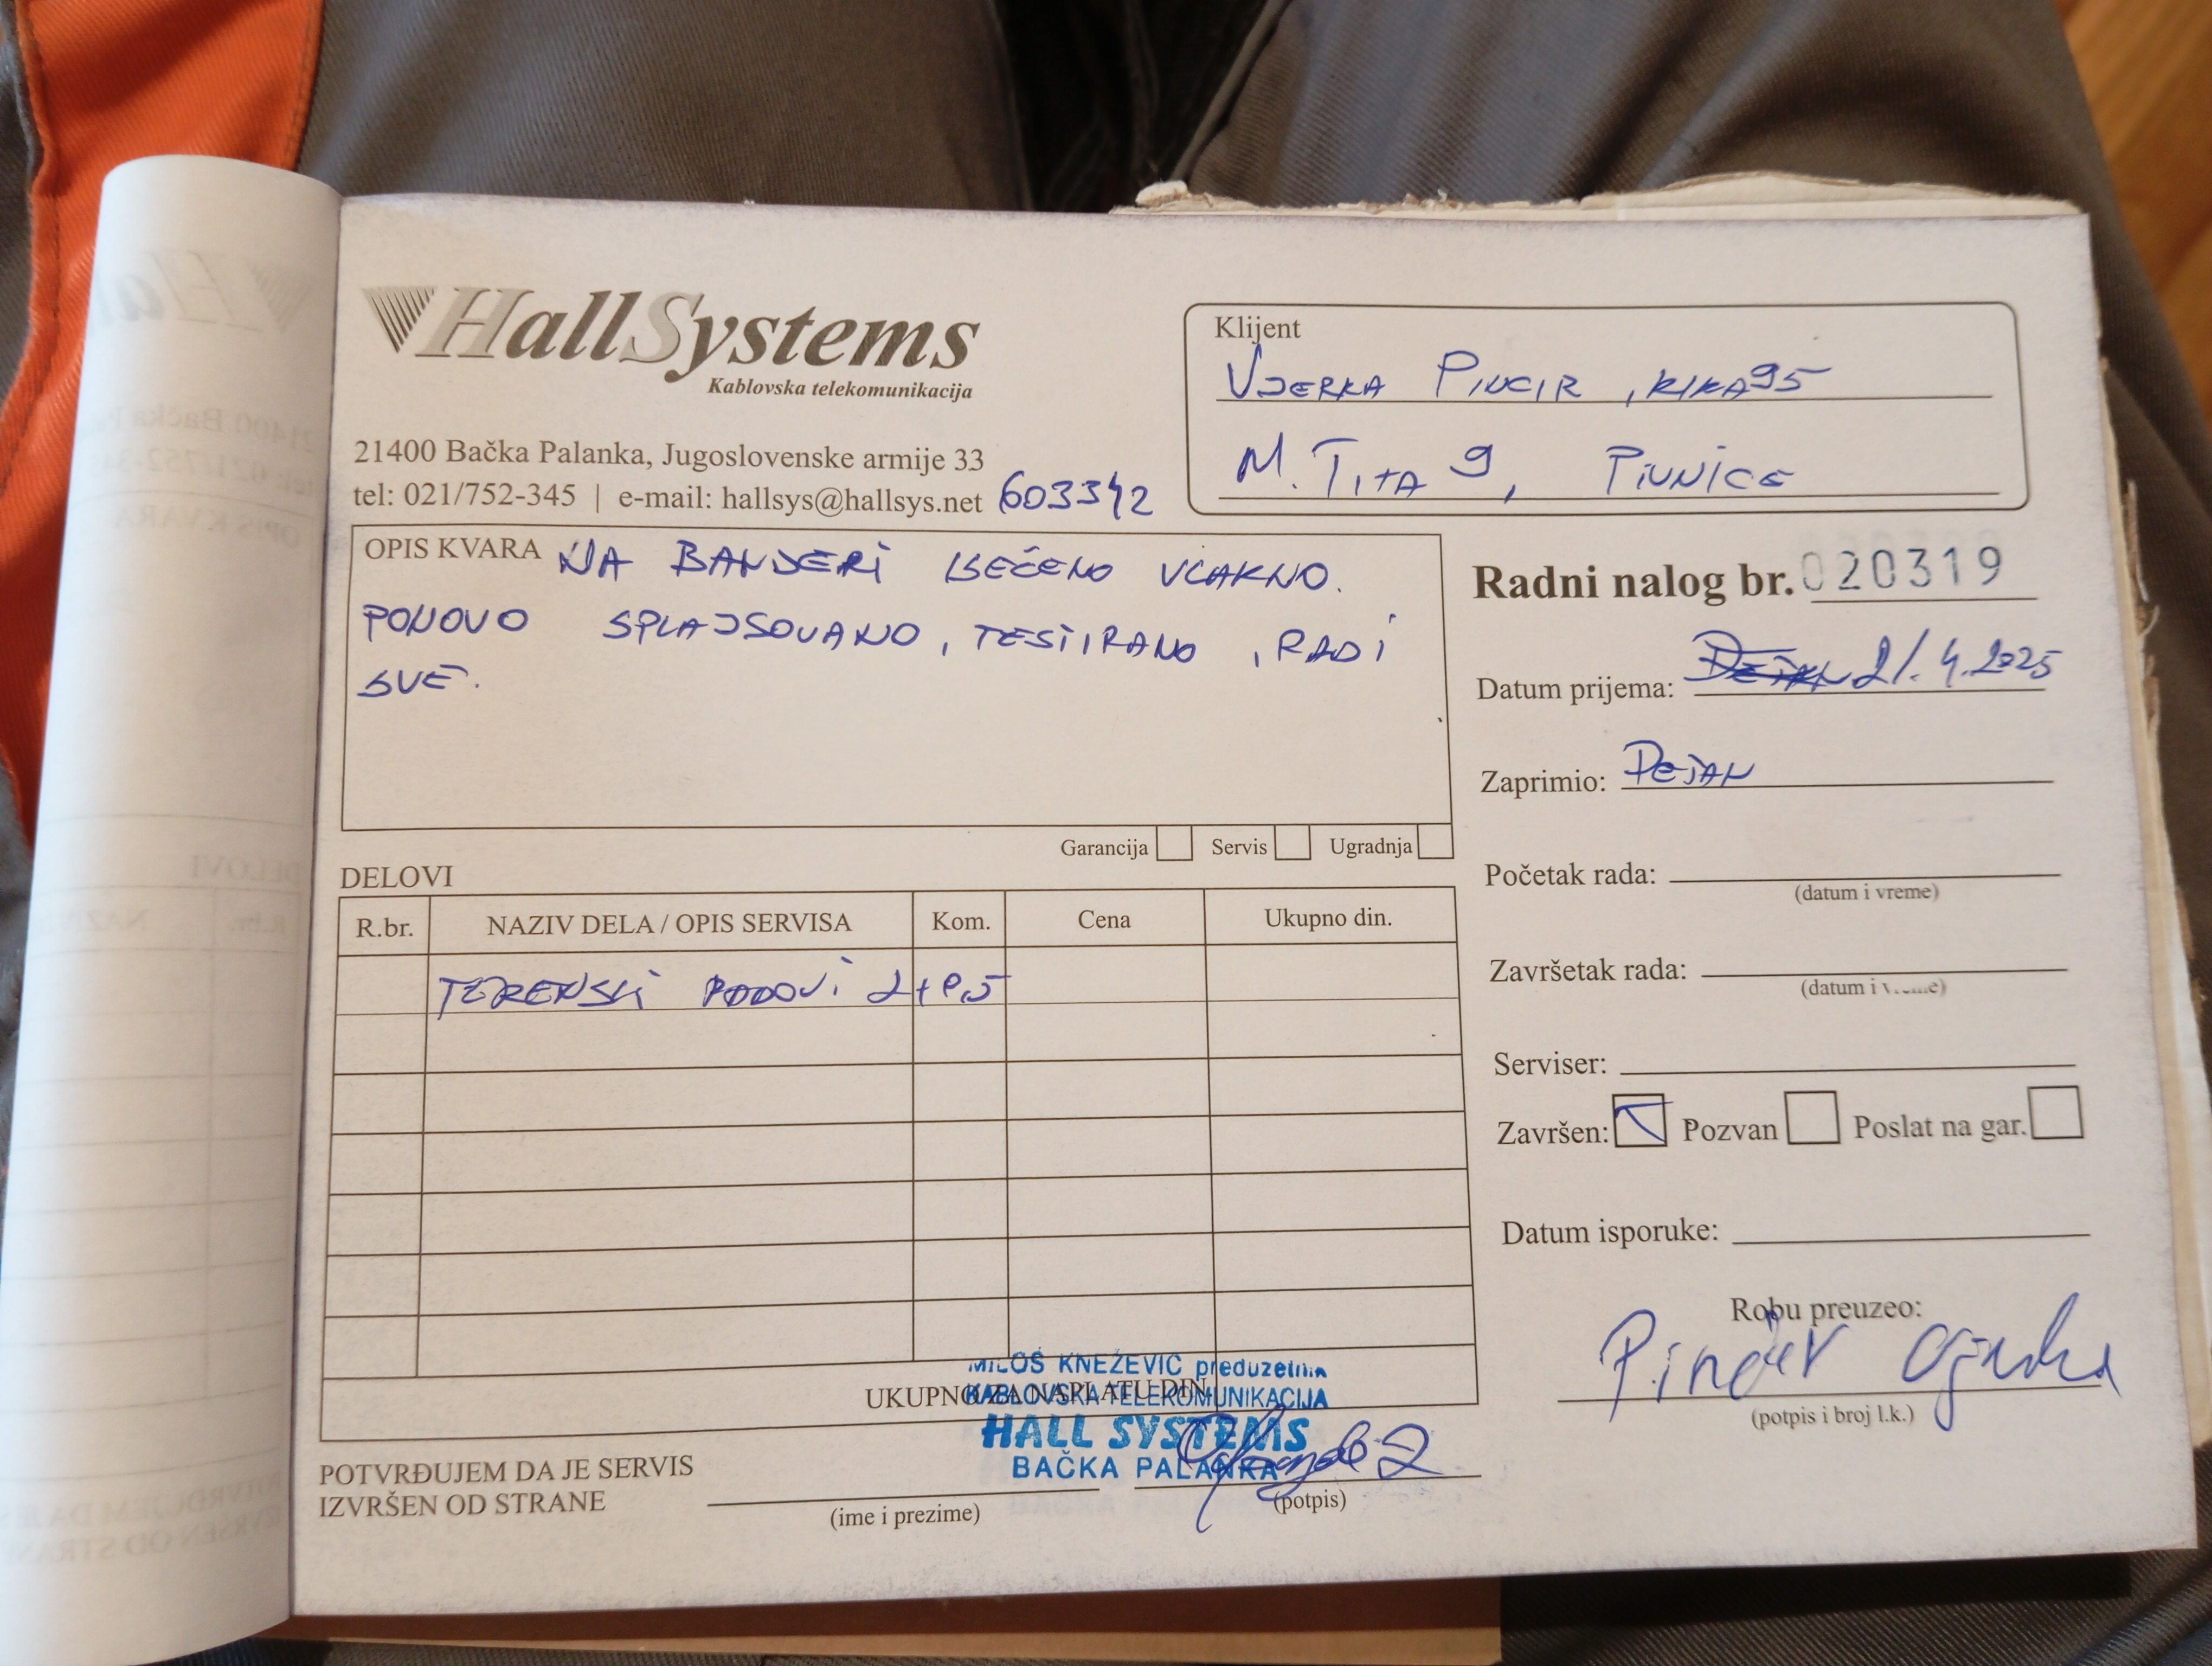 HallSystems
Kablovska telekomunikacija
21400 Bačka Palanka, Jugoslovenske armije 33
tel: 021/752-345 | e-mail: hallsys@hallsys.net 603342
Klijent
VJERKA PINCIR, KIKA95
M. TITA 9, PIVNICE
OPIS KVARA NA BANDERI ISEČENO VLAKNO.
PONOVO SPLAJSOVANO, TESTIRANO, RADI
SVE.
Garancija Servis Ugradnja
Radni nalog br. 020319
Datum prijema: 21.4.2025
Zaprimio: DEJAN
Početak rada:
(datum i vreme)
Završetak rada:
(datum i vreme)
Serviser:
Završen: Pozvan Poslat na gar.
Datum isporuke:
Robu preuzeo:
(potpis i broj l.k.)
DELOVI
R.br. NAZIV DELA / OPIS SERVISA Kom. Cena Ukupno din.
TERENSKI
UKUPNO ZA NAPLATU DIN.
MILOŠ KNEŽEVIĆ preduzetnik
KABLOVSKA TELEKOMUNIKACIJA
HALL SYSTEMS
BAČKA PALANKA
POTVRĐUJEM DA JE SERVIS
IZVRŠEN OD STRANE
(ime i prezime) (potpis)